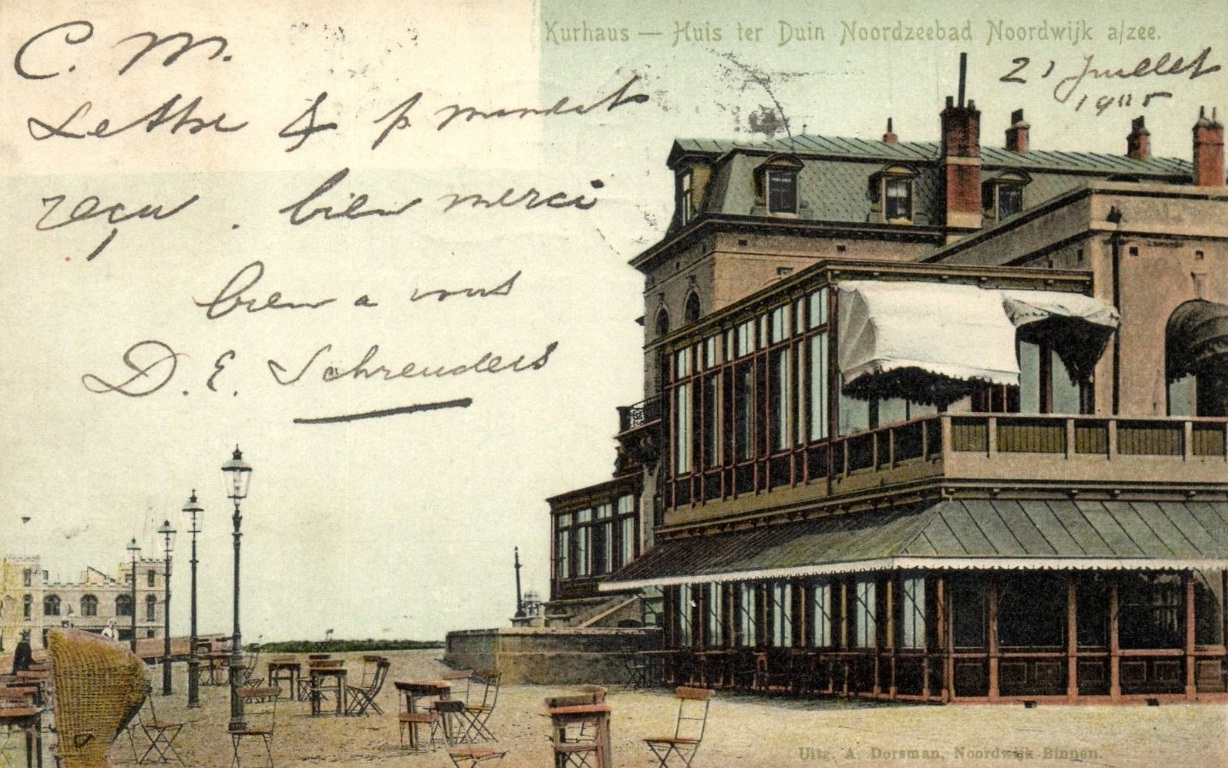 Kurhaus — Huis ter Duin Noordzeebad Noordwijk a/zee.
21 Juillet
1905
C. M.
Lettre & p mandat
reçu . bien merci
bien a vous
D. E. Schreuders
Uitg. A. Dorsman, Noordwijk Binnen.